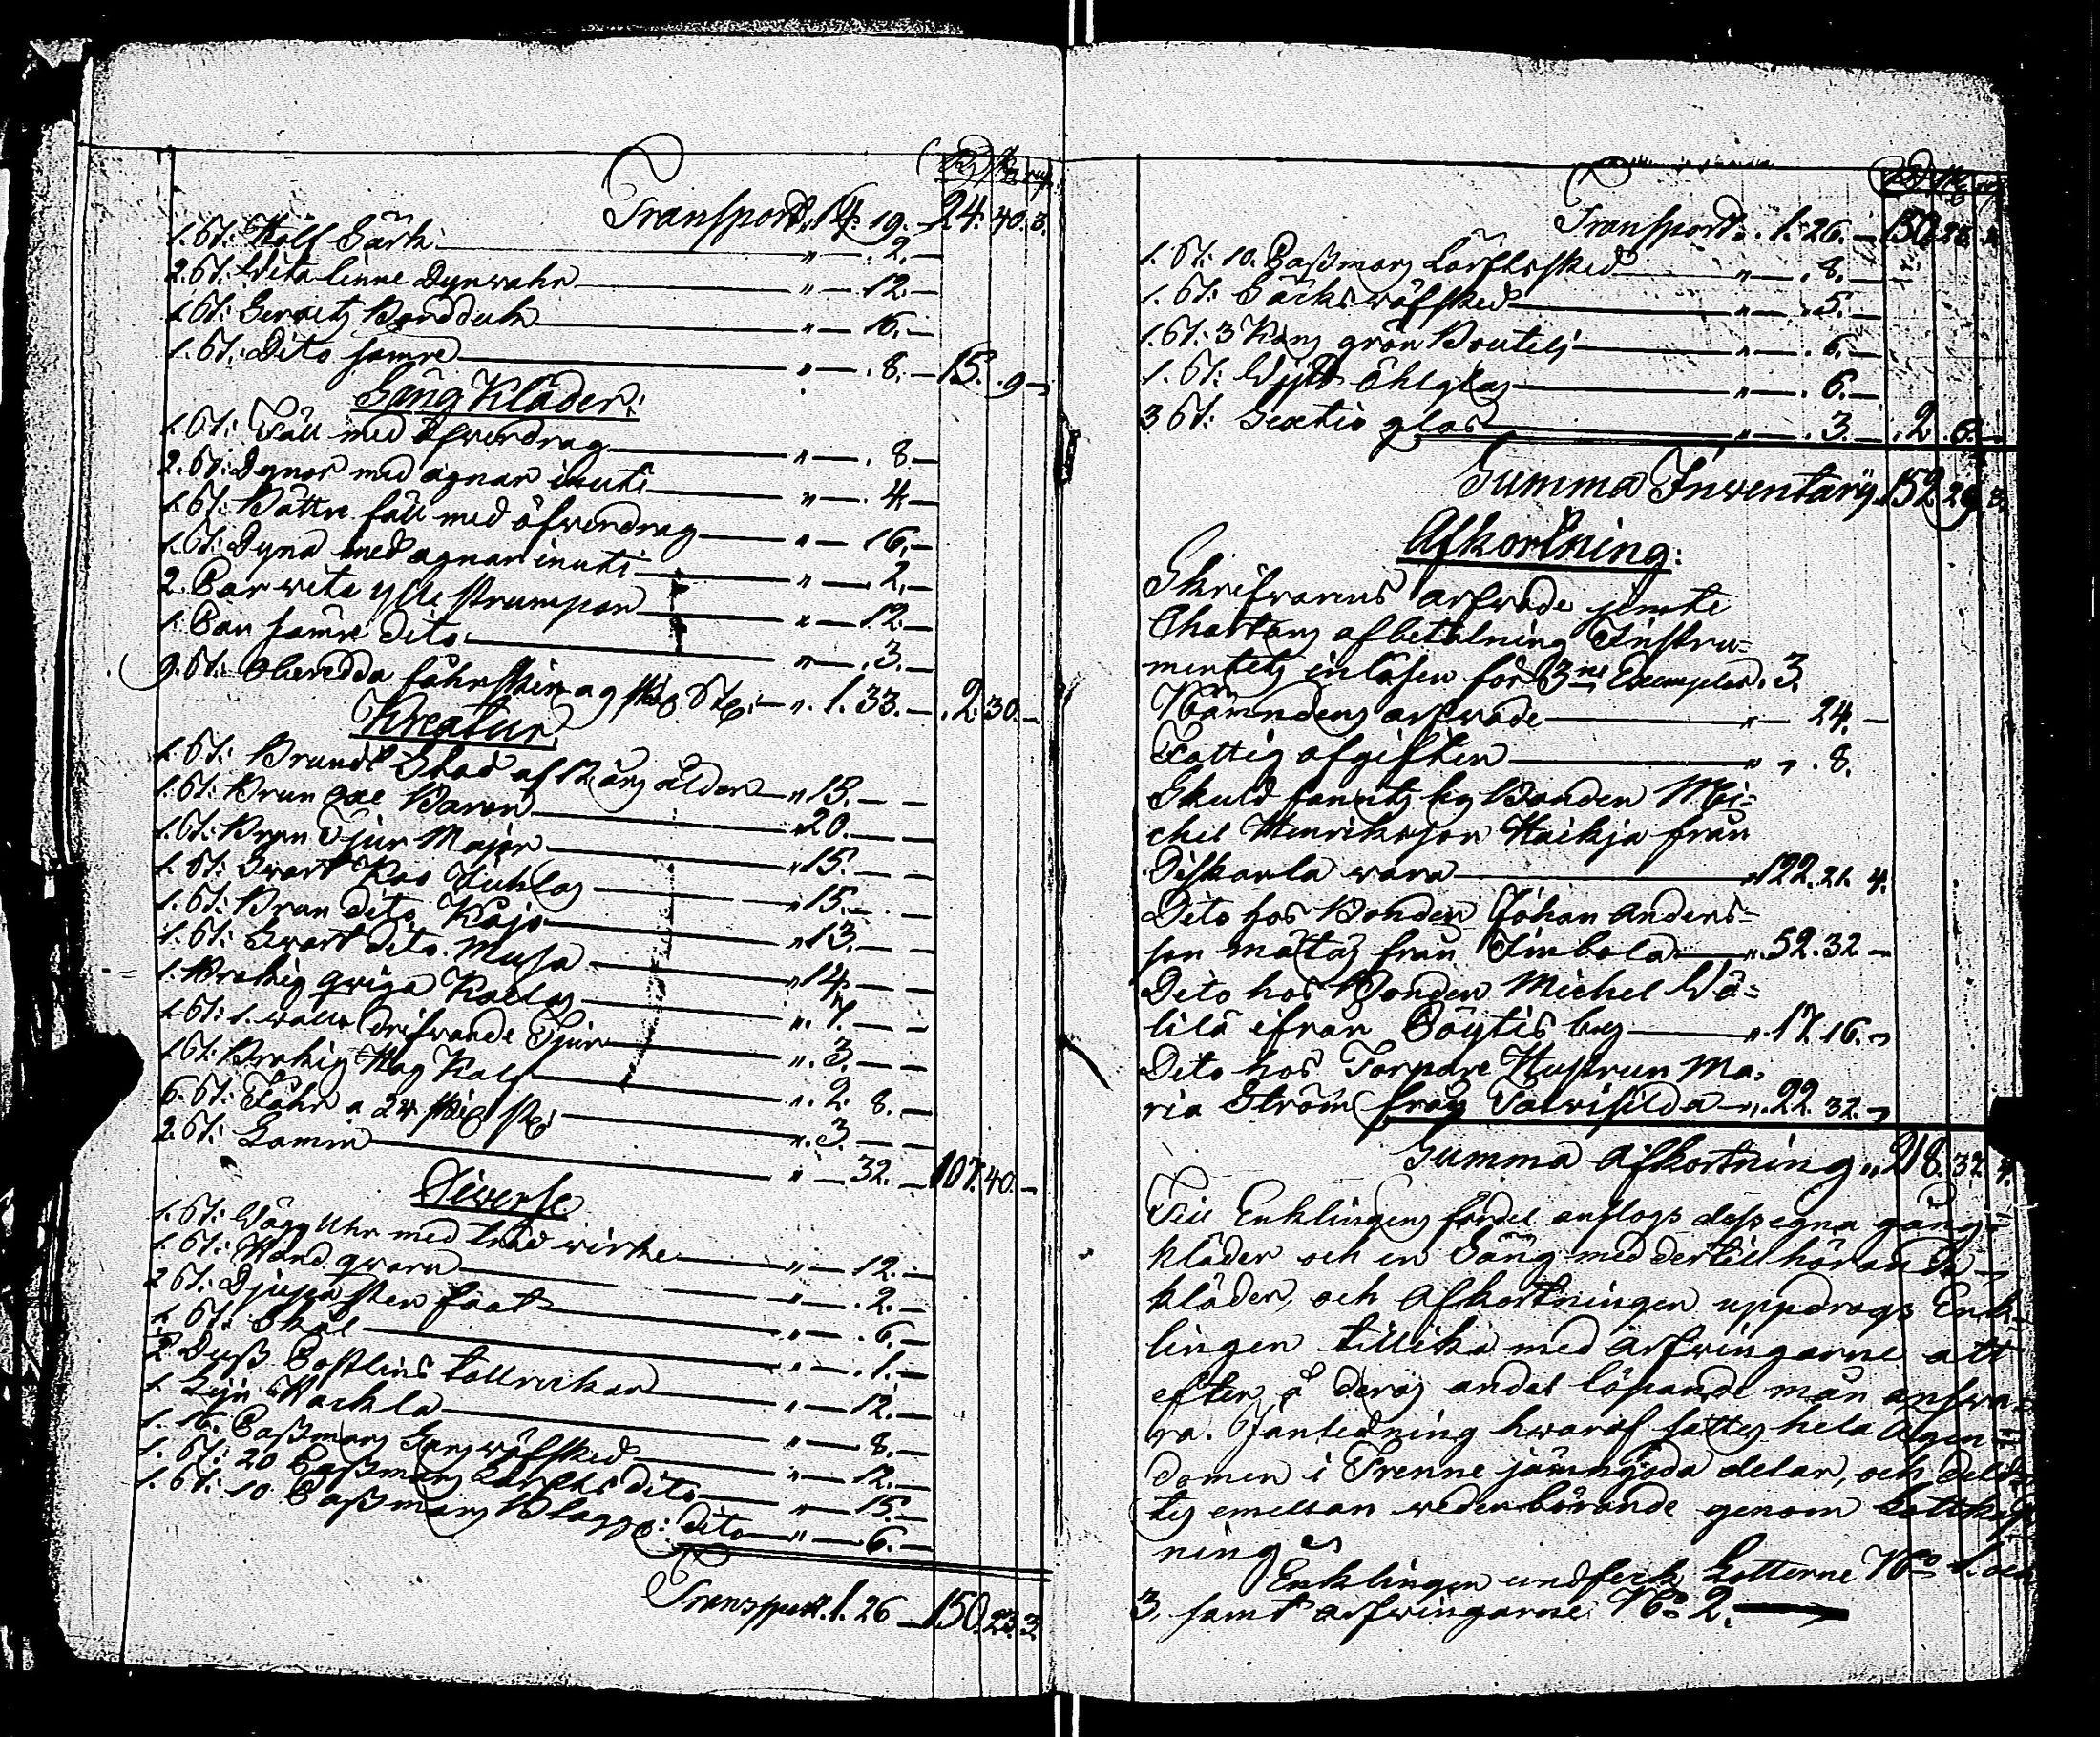 Transport 14. 19. — 24. 40. 3.
1. St: Kålf Särk — " — . 2. —
2. St: Wita linne Dynwahr — " — 12. —
1. St: Serwetz Bordduk — " — 16. —
1. St: Dito sämre — " — . 8. — 15. . 9 —
Säng Kläder:
1. St: Fäll med öfwerdrag — " — . 8 —
2. St: Dynor med agnar inuti — " — . 4 —
1. St: Båttn fäll med öfwerdrag — " — 16. —
1. St: Dyna med agnar inuti — " — . 2. —
2. Par wita ylle strumpor — " — 12. —
1. Par sämre dito — " — . 3. —
9. St: Oberedda fåhrskin a 9 sk: St: — ". 1. 33. — . 2. 30. —
Kreatur
1. St: Brundt Stod af 12 års ålder — " 13. — —
1. St: Brun oxe Baron — " 20. — —
1. St: Brun Tjur Major — " 15. — —
1. St: Swart Ko — " 15. — —
1. St: Brun dito Kajo — " 13. — —
1. St: Swart dito Musa — " 14. — —
1. Brokig qwiga — ". 7. — —
1. St: 1. drifwande Tjur — ". 3. — —
1. St: Brokig Kalf — ". 2. 8. —
6. St: Fåhr a 24 sk: st: — ". 3. — —
2. St: Lamm — " — 32. — 107. 40. —
Diverse
1. St: Wägg Uhr med träd wirke — " — 12. —
1. St: Hand qwarn — " — . 2. —
2 St: Djupa sten faat — " — . 6. —
1. St: Skål — " — . 1. —
2 Duss Postlins tallrickar — " — 12. —
1. Lijn Häckla — " — 8. —
1. 16. Passmans wäfsked — " — 12. —
1. St: 20 Passmans Lärfts dito — " — 15. —
1. St: 10 Passmans Blaggs: dito — " — 6. —
Transport. 1. 26 — 150. 23. 3.
Transport . 1. 26. — 150. 23. 3.
1. St: 10. Passmans Lärftssked — " — . 8. —
1. St: Säcks wäfsked — " — . 5. —
1. St: 3 Kans grön Boutelj — " — . 6. —
1. St: öhlglas — " — . 6. —
3 St: glas — " — . 3. — . 2. . 6. —
Summa Inwentarij 152. 29. 3.
Afkortning:
Skrifwarens arfwode jemte
Chartans afbetalning Instru=
mentetz inlösen för 3ne Exemplar . 3.
Nämndens arfwode — " — 24. —
Fattig afgiften — " — . 8.
Skuld fanns hos Bonden Mi=
chel Henriksson Haikja från
Diskarla wara — " 122. 21. 4.
Dito hos Bonden Johan Anders=
son från — ". 52. 32 —
Dito hos Bonden Michel Wä=
lilä ifrån Pöytis by — ". 17. 16. —
Dito hos Torpare Hustrun Ma=
ria Ström från — ". 22. 32. —
Summa afkortning " 218. 37. 4.
Till Enklingens fördel anslogs dess egna gång=
kläder och en Säng med dertill hörande
kläder, och afkortningen uppdrogs Enk=
lingen tillika med arfwingarne att
efter å deras andel löpande mån answa=
ra. I anledning hwaraf sattes hela Egen=
domen i Trenne jämngoda delar, och delt
tes emellan wederbörande genom
ning
Enklingen undfeck Lotterne No 1. och
3. samt arfwingarne No 2. —